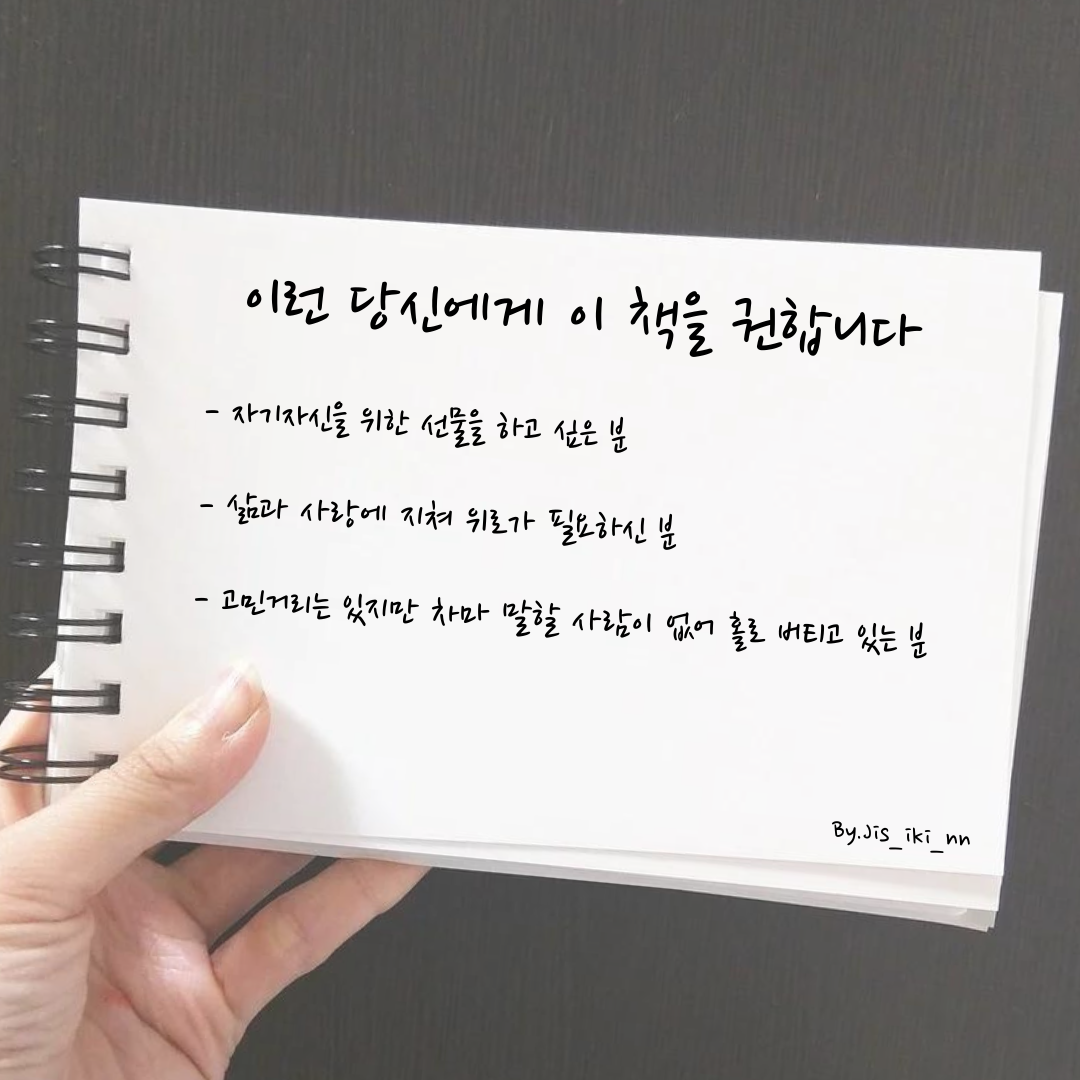 이런 당신에게 이 책을 권합니다
- 자기자신을 위한 선물을 하고 싶은 분
- 삶과 사랑에 지쳐 위로가 필요하신 분
- 고민거리는 있지만 차마 말할 사람이 없어 홀로 버티고 있는 분
By.Jis_iki_nn